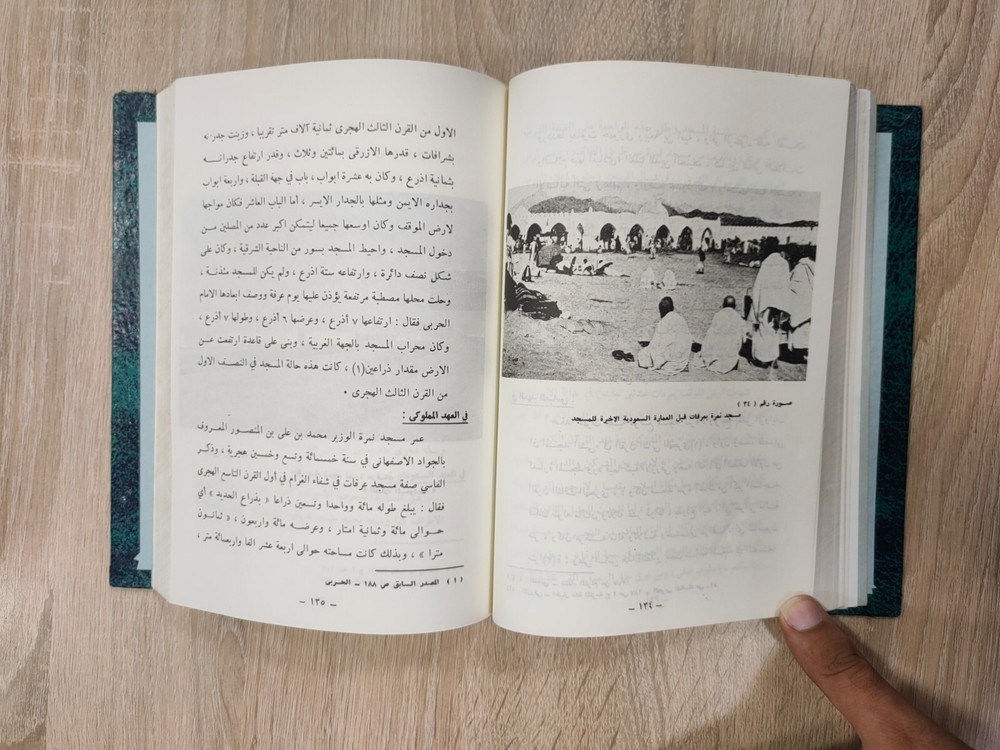 صورة رقم ( ٣٤ )
مسجد نمرة بعرفات قبل العمارة السعودية الاخيرة للمسجد
– ١٣٤ –
الاول من القرن الثالث الهجرى ثمانية آلاف متر تقريبا ، وزينت جدرانه
بشرافات ، قدرها الازرقى بمائتين وثلاث ، وقدر ارتفاع جدرانـــه
بثمانية اذرع ، وكان به عشرة ابواب ، باب في جهة القبلة ، واربعة ابواب
بجداره الايمن ومثلها بالجدار الايسر ، أما الباب العاشر فكان مواجها
لارض الموقف وكان اوسعها جميعا ليتمكن اكبر عدد من المصلين مـن
دخول المسجد ، واحيط المسجد بسور من الناحية الشرقية ، وكان على
شكل نصف دائرة ، وارتفاعه ستة اذرع ، ولم يكن للمسجد مئذنة ،
وحلت محلها مصطبة مرتفعة يؤذن عليها يوم عرفة ووصف ابعادها الامام
الحربى فقال : ارتفاعها ٧ أذرع ، وعرضها ٦ أذرع ، وطولها ٧ أذرع ،
وكان محراب المسجد بالجهة الغربية ، وبنى على قاعدة ارتفعت عـن
الارض مقدار ذراعين(١) ، كانت هذه حالة المسجد في النصـف الاول
من القرن الثالث الهجرى .
في العهد المملوكى :
عمر مسجد نمرة الوزير محمد بن على بن المنصـور المعـروف
بالجواد الاصفهانى في سنة خمسـائة وتسـع وخمسين هجرية ، وذكـر
الفاسي صفة مسجد عرفات في شفاء الغرام في أول القرن التاسع الهجرى
فقال : يبلغ طوله مائة وواحدا وتسعين ذراعا « بذراع الحديد » أي
حـوالى مائة وثمانية امتار ، وعرضـه مائة واربعون ، « ثمـانـون
مترا » ، وبذلك كانت مساحته حوالى اربعة عشر الفا واربعمائة متر ،
( ١ ) المصدر السابق ص ١٨٨ – الحربى
– ١٣٥ –